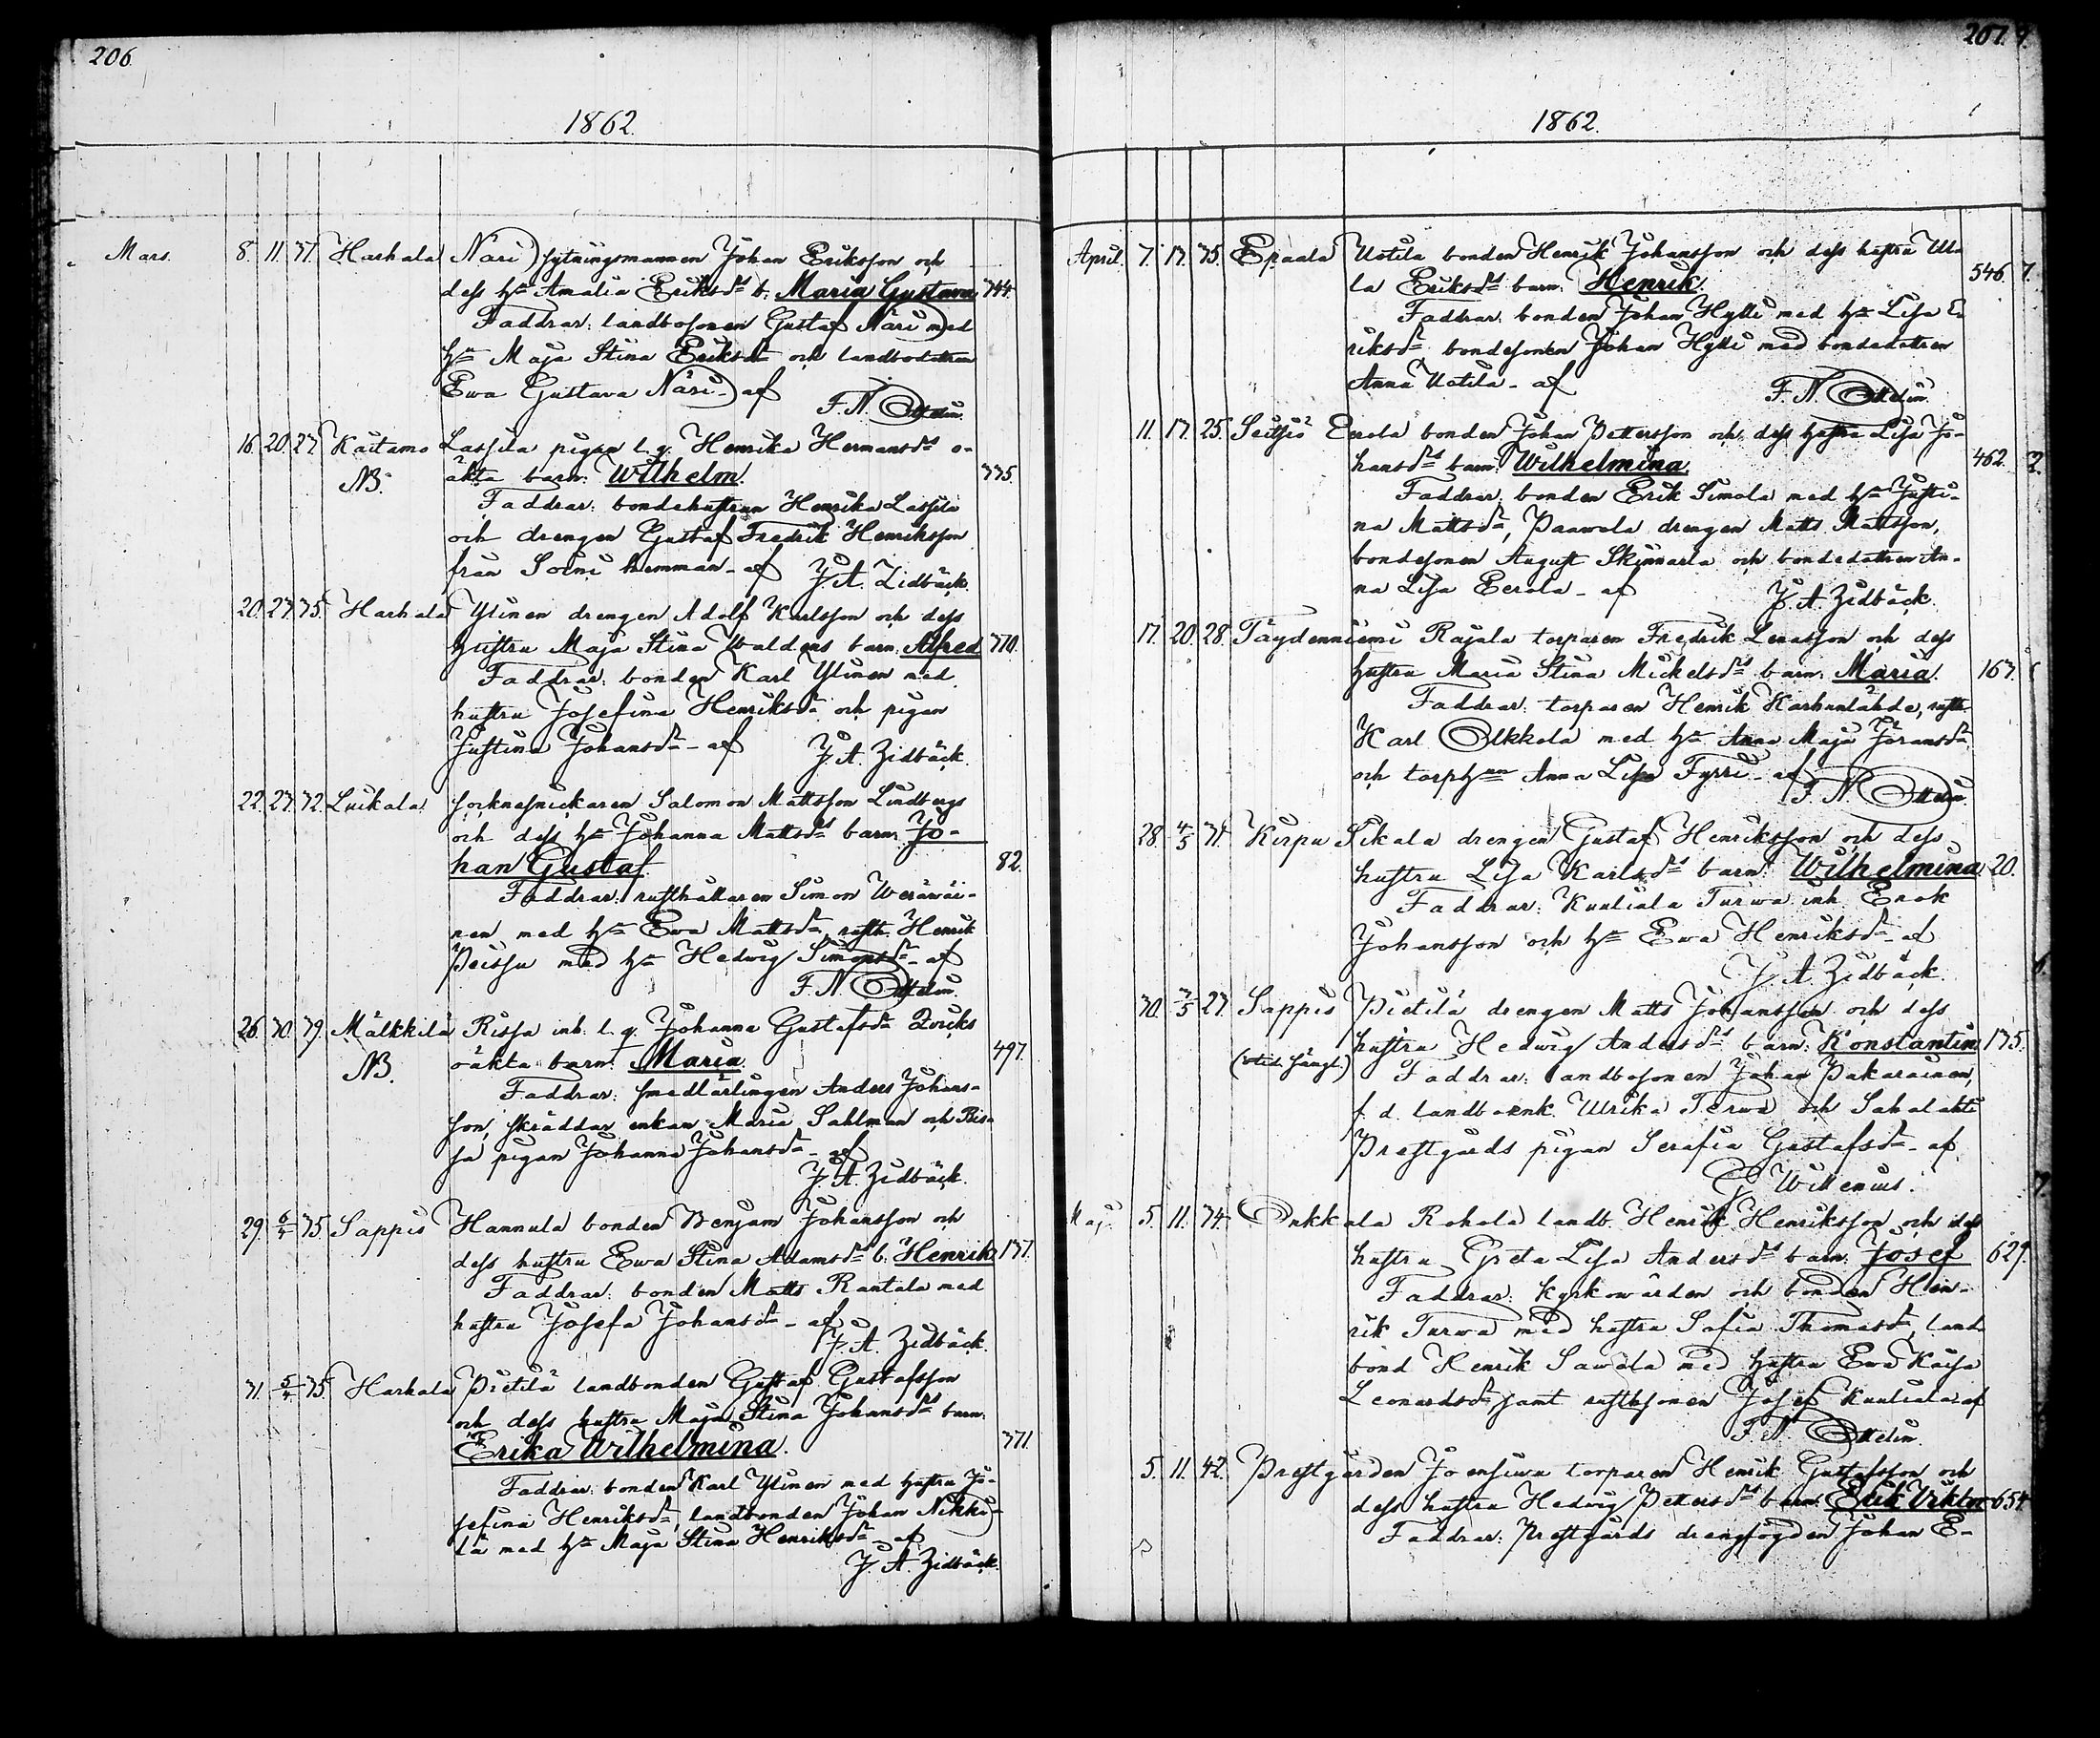 206.
1862.
Mars. 8. 11. 31. Harhala Näri sytningsmannen Johan Eriksson och
dess hu Amalia Eriksdrs b: Maria Gustava 344.
Faddrar: landbosonen Gustaf Näri med
hu Maja Stina Eriksdr och landbodottren
Ewa Gustava Näri - af
F. N. Ottelin.
16. 20. 27. Kaitamo Lassila pigan l. q. Henrika Hermansdrs o-
NB. äkta barn: Wilhelm. 335.
Faddrar: bondehustrun Henrika Lassila
och drengen Gustaf Fredrik Henriksson
från Soini hemman - af J. A. Zidbäck.
20. 27. 35. Harhala Ylinen drengen Adolf Karlsson och dess
hustru Maja Stina Waldens barn: Alfred 370.
Faddrar: bonden Karl Ylinen med
hustru Josefina Henriksdr och pigan
Justina Johansdr - af J. A. Zidbäck.
22. 27. 32. Luikala socknesnickaren Salomon Mattsson Lindbergs
och dess hu Johanna Mattsdrs barn: Jo-
han Gustaf. 82.
Faddrar: rusthållaren Simon Weräwäi-
nen med hu Ewa Mattsdr, rusth. Henrik
Peissu med hu Hedwig Simonsdr - af
F. N. Ottelin.
26. 30. 39. Mälkkilä Rissa inh. l. q. Johanna Gustafsdr Qvicks
NB. oäkta barn: Maria. 497.
Faddrar: smedlärlingen Anders Johans-
son, skräddar enkan Maria Sahlman och Ris-
sa pigan Johanna Johansdr - af
J. A. Zidbäck.
29. 6/4 35. Sappis Hannula bonden Benjam Johansson och
dess hustru Ewa Stina Adamsdrs b: Henrik 131.
Faddrar: bonden Matts Rantala med
hustru Josefa Johansdr - af
J. A. Zidbäck.
31. 5/4 35. Harhala Pietilä landbonden Gustaf Gustafsson
och dess hustru Maja Stina Johansdrs barn:
Erika Wilhelmina. 371.
Faddrar: bonden Karl Ylinen med hustru Jo-
sefina Henriksdr, landbonden Johan Nikki-
lä med hu Maja Stina Henriksdr - af
J. A. Zidbäck.
207.
1862.
April. 7. 17. 35. Epaala Uotila bonden Henrik Johansson och dess hustru Ul-
la Eriksdrs barn: Henrik. 546.
Faddrar: bonden Johan Hylli med hu Lisa E-
riksdr bondesonen Johan Hylli med bondedottren
Anna Uotila - af F. N. Ottelin.
11. 17. 25. Seitsis Eerola bonden Johan Pettersson och dess hustru Lisa Jo-
hansdrs barn: Wilhelmina. 462.
Faddrar: bonden Erik Simola med hu Justi-
na Mattsdr, Paawola drengen Matts Mattsson,
bondesonen August Skinnarla och bondedottren An-
na Lisa Eerola - af J. A. Zidbäck.
17. 20. 28. Täydenniemi Rajala torparen Fredrik Lenasson och dess
hustru Maria Stina Mickelsdrs barn: Maria. 167.
Faddrar: torparen Henrik Karhunlähde, rusth.
Karl Olkkola med hu Anna Maja Göransdr
och torphun Anna Lisa Tyrri - af
F. N. Ottelin.
28. 4/5 31. Kirpu Sikala drengen Gustaf Henriksson och dess
hustru Lisa Karlsdrs barn: Wilhelmina 20.
Faddrar: Kuuliala Turwa inh. Enok
Johansson och hu Ewa Henriksdr - af
J. A. Zidbäck.
30. 3/5 27. Sappis Pietilä drengen Matts Johansson och dess
hustru Hedwig Andersdrs barn: Konstantin 135.
Faddrar: landbosonen Johan Pakarainen,
f. d. landboenk. Ulrika Terwa och Sahalahti
Prestgårds pigan Serafia Gustafsdr - af
G. Willenius.
Maj. 5. 11. 34. Onkkala Rohola landb. Henrik Henriksson och dess
hustru Greta Lisa Andersdrs barn: Josef 629.
Faddrar: kyrkowärden och bonden Hen-
rik Turwa med hustru Sofia Thomasdr, land-
bond Henrik Sawola med hustru Ewa Kaisa
Leonardsdr samt rusthsonen Josef Kuuliala af
F. N. Ottelin.
5. 11. 42. Prestgården Joensuu torparen Henrik Gustafsson och
dess hustru Hedwig Pettersdrs barn: Erik Viktor 654.
Faddrar: Prestgårds drengfogden Johan E-